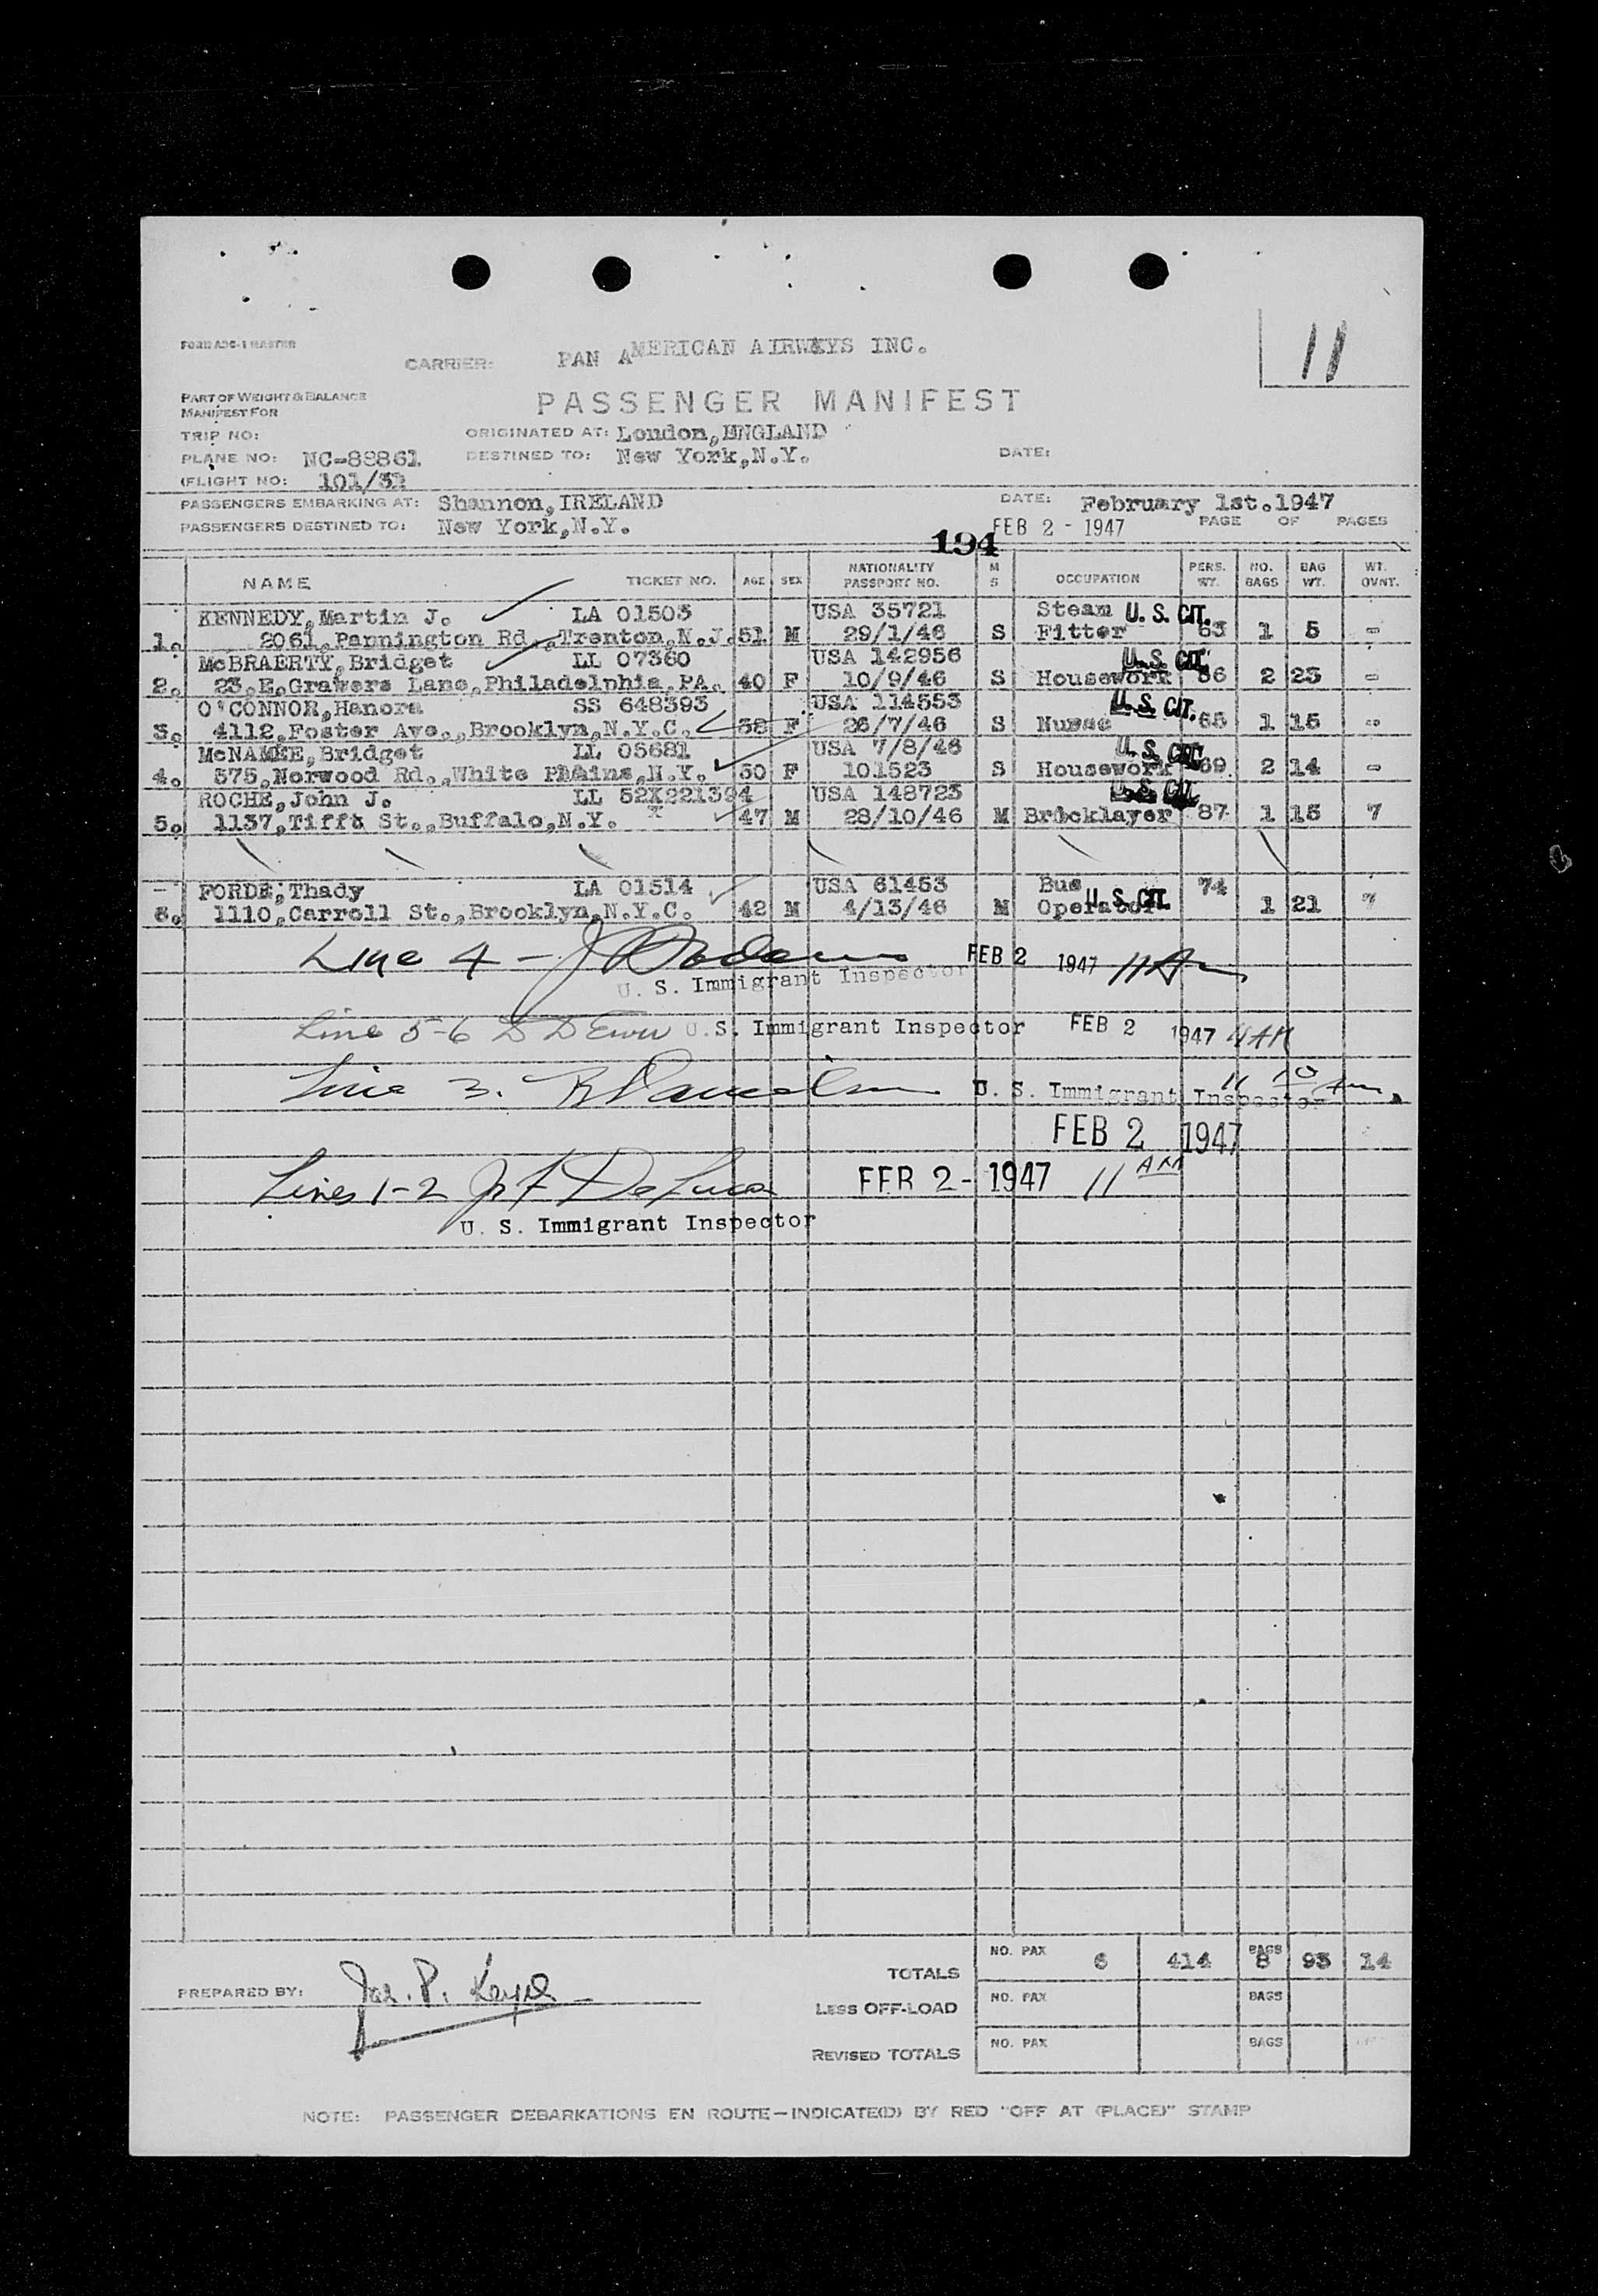 11
FORM ADC-1 MASTER
CARRIER: PAN AMERICAN AIRWAYS INC.
PART OF WEIGHT & BALANCE
MANIFEST FOR
PASSENGER MANIFEST
TRIP NO: ORIGINATED AT: London, ENGLAND
PLANE NO: NC-88861 DESTINED TO: New York, N.Y. DATE:
(FLIGHT NO: 101/31
PASSENGERS EMBARKING AT: Shannon, IRELAND DATE: February 1st.1947
PASSENGERS DESTINED TO: New York, N.Y. FEB 2 - 1947 PAGE OF PAGES
194
NAME TICKET NO. AGE SEX NATIONALITY PASSPORT NO. M S OCCUPATION PERS. WT. NO. BAGS BAG WT. WT. OVNT.
KENNEDY, Martin J. LA 01503 USA 35721 Steam U. S. CIT.
1. 2061, Pannington Rd., Trenton, N.J. 51 M 29/1/46 S Fitter 63 1 5 -
McBRAERTY, Bridget LL 07360 USA 142956 U. S. CIT.
2. 23, E, Gravers Lane, Philadelphia, PA. 40 F 10/9/46 S Housework 56 2 23 -
O'CONNOR, Hanora SS 648393 USA 114553 U. S. CIT.
3. 4112, Foster Ave., Brooklyn, N.Y.C. 38 F 26/7/46 S Nurse 65 1 15 -
McNAMEE, Bridget LL 05681 USA 7/8/46 U. S. CIT.
4. 575, Norwood Rd., White Plains, N.Y. 50 F 101523 S Housework 69 2 14 -
ROCHE, John J. LL 52X221394 USA 148723 U. S. CIT.
5. 1137, Tifft St., Buffalo, N.Y. X 47 M 28/10/46 M Bricklayer 87 1 15 7
- FORDE, Thady LA 01514 USA 61453 Bus 74
6. 1110, Carroll St., Brooklyn, N.Y.C. 42 M 4/13/46 M Operator U. S. CIT. 1 21 7
Line 4 - FEB 2 1947 11 Am
U. S. Immigrant Inspector
Line 5-6 U.S. Immigrant Inspector FEB 2 1947 11 AM
Line 3. U. S. Immigrant Inspector 11 10 Am
FEB 2 1947
Lines 1-2 De Luca FEB 2 - 1947 11 AM
U. S. Immigrant Inspector
TOTALS NO. PAX 6 414 BAGS 8 93 14
PREPARED BY: Jas. P.
LESS OFF-LOAD NO. PAX BAGS
REVISED TOTALS NO. PAX BAGS
NOTE: PASSENGER DEBARKATIONS EN ROUTE—INDICATE(D) BY RED "OFF AT (PLACE)" STAMP